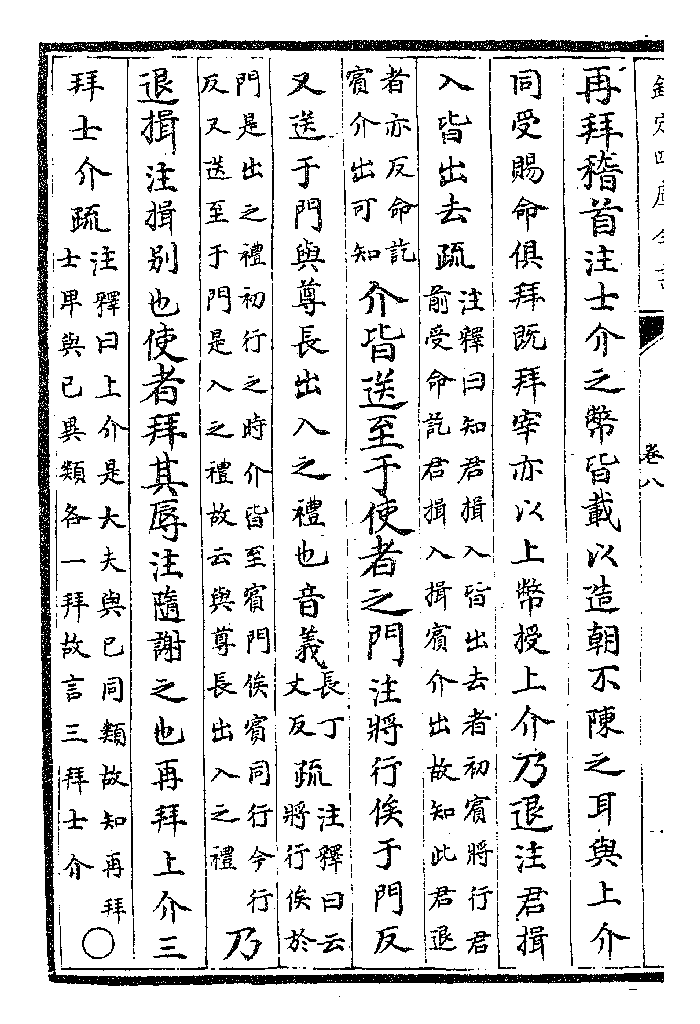 欽定四庫全書
卷八
再拜稽首注士介之幣皆載以造朝不陳之耳與上介
同受賜命俱拜既拜宰亦以上幣授上介乃退注君揖
入皆出去疏注釋曰知君揖入皆出去者初賓將行君
前受命訖君揖入揖賓介出故知此君退
者亦反命訖
賓介出可知介皆送至于使者之門注將行俟于門反
又送于門與尊長出入之禮也音義長丁
丈反疏注釋曰云
將行俟於
門是出之禮初行之時介皆至賓門俟賓同行今行
反又送至于門是入之禮故云與尊長出入之禮乃
退揖注揖别也使者拜其辱注隨謝之也再拜上介三
拜士介疏注釋曰上介是大夫與已同類故知再拜
士卑與已異類各一拜故言三拜士介〇